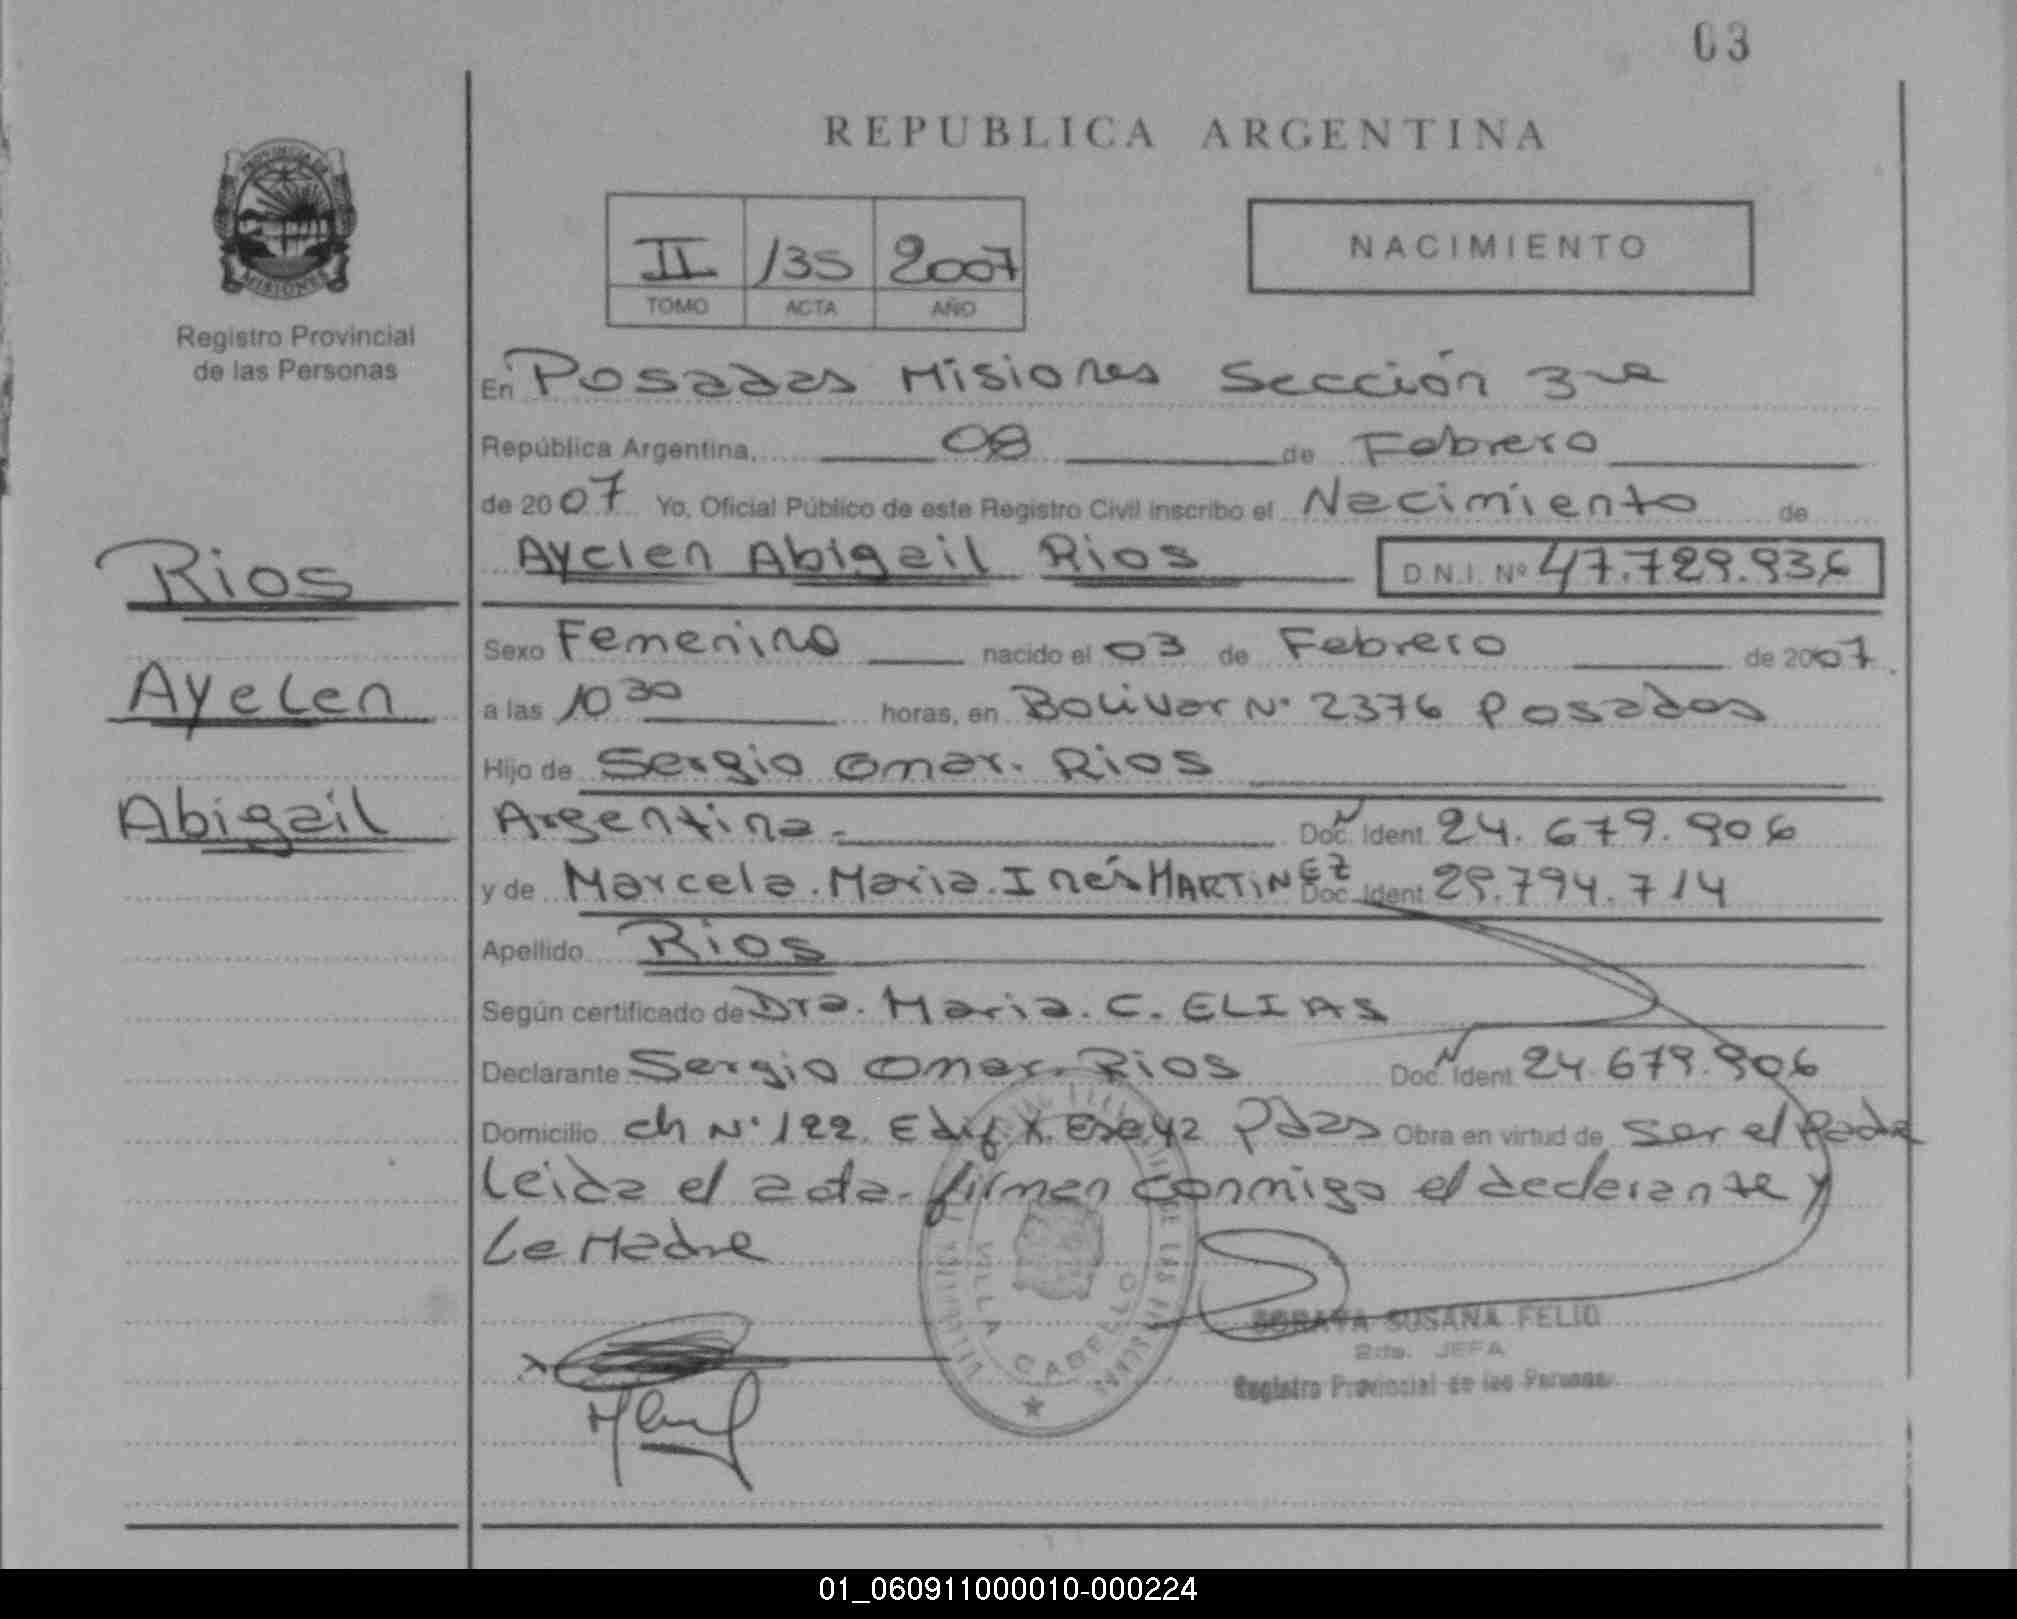 03
REPUBLICA ARGENTINA
PROVINCIA DE
MISIONES
Registro Provincial
de las Personas
II /35 2007
TOMO ACTA AÑO
NACIMIENTO
En Posadas Misiones Sección 3ra
República Argentina, 08 de Febrero
de 2007 Yo, Oficial Público de este Registro Civil inscribo el Nacimiento de
Ayelen Abigail Rios D.N.I. Nº 47.729.936
Rios
Ayelen
Abigail
Sexo Femenino nacido el 03 de Febrero de 2007
a las 10 30 horas, en Bolivar Nº 2376 Posadas
Hijo de Sergio Omar. Rios
Argentina.- Doc. Ident. 24.679.906
y de Marcela. Maria. Inés MARTINEZ Doc. Ident. 29.794.714
Apellido Rios
Según certificado de Dra. Maria. C. ELIAS
Declarante Sergio Omar. Rios Doc. Ident. 24.679.906
Domicilio ch Nº 122. Edif. X. Esc. 42 Pdas Obra en virtud de ser el Padre
Leida el acta. firman conmigo el declarante y
La Madre
VILLA CABELLO
SORAYA SUSANA FELIO
2da. JEFA
Registro Provincial de las Personas
01_060911000010-000224